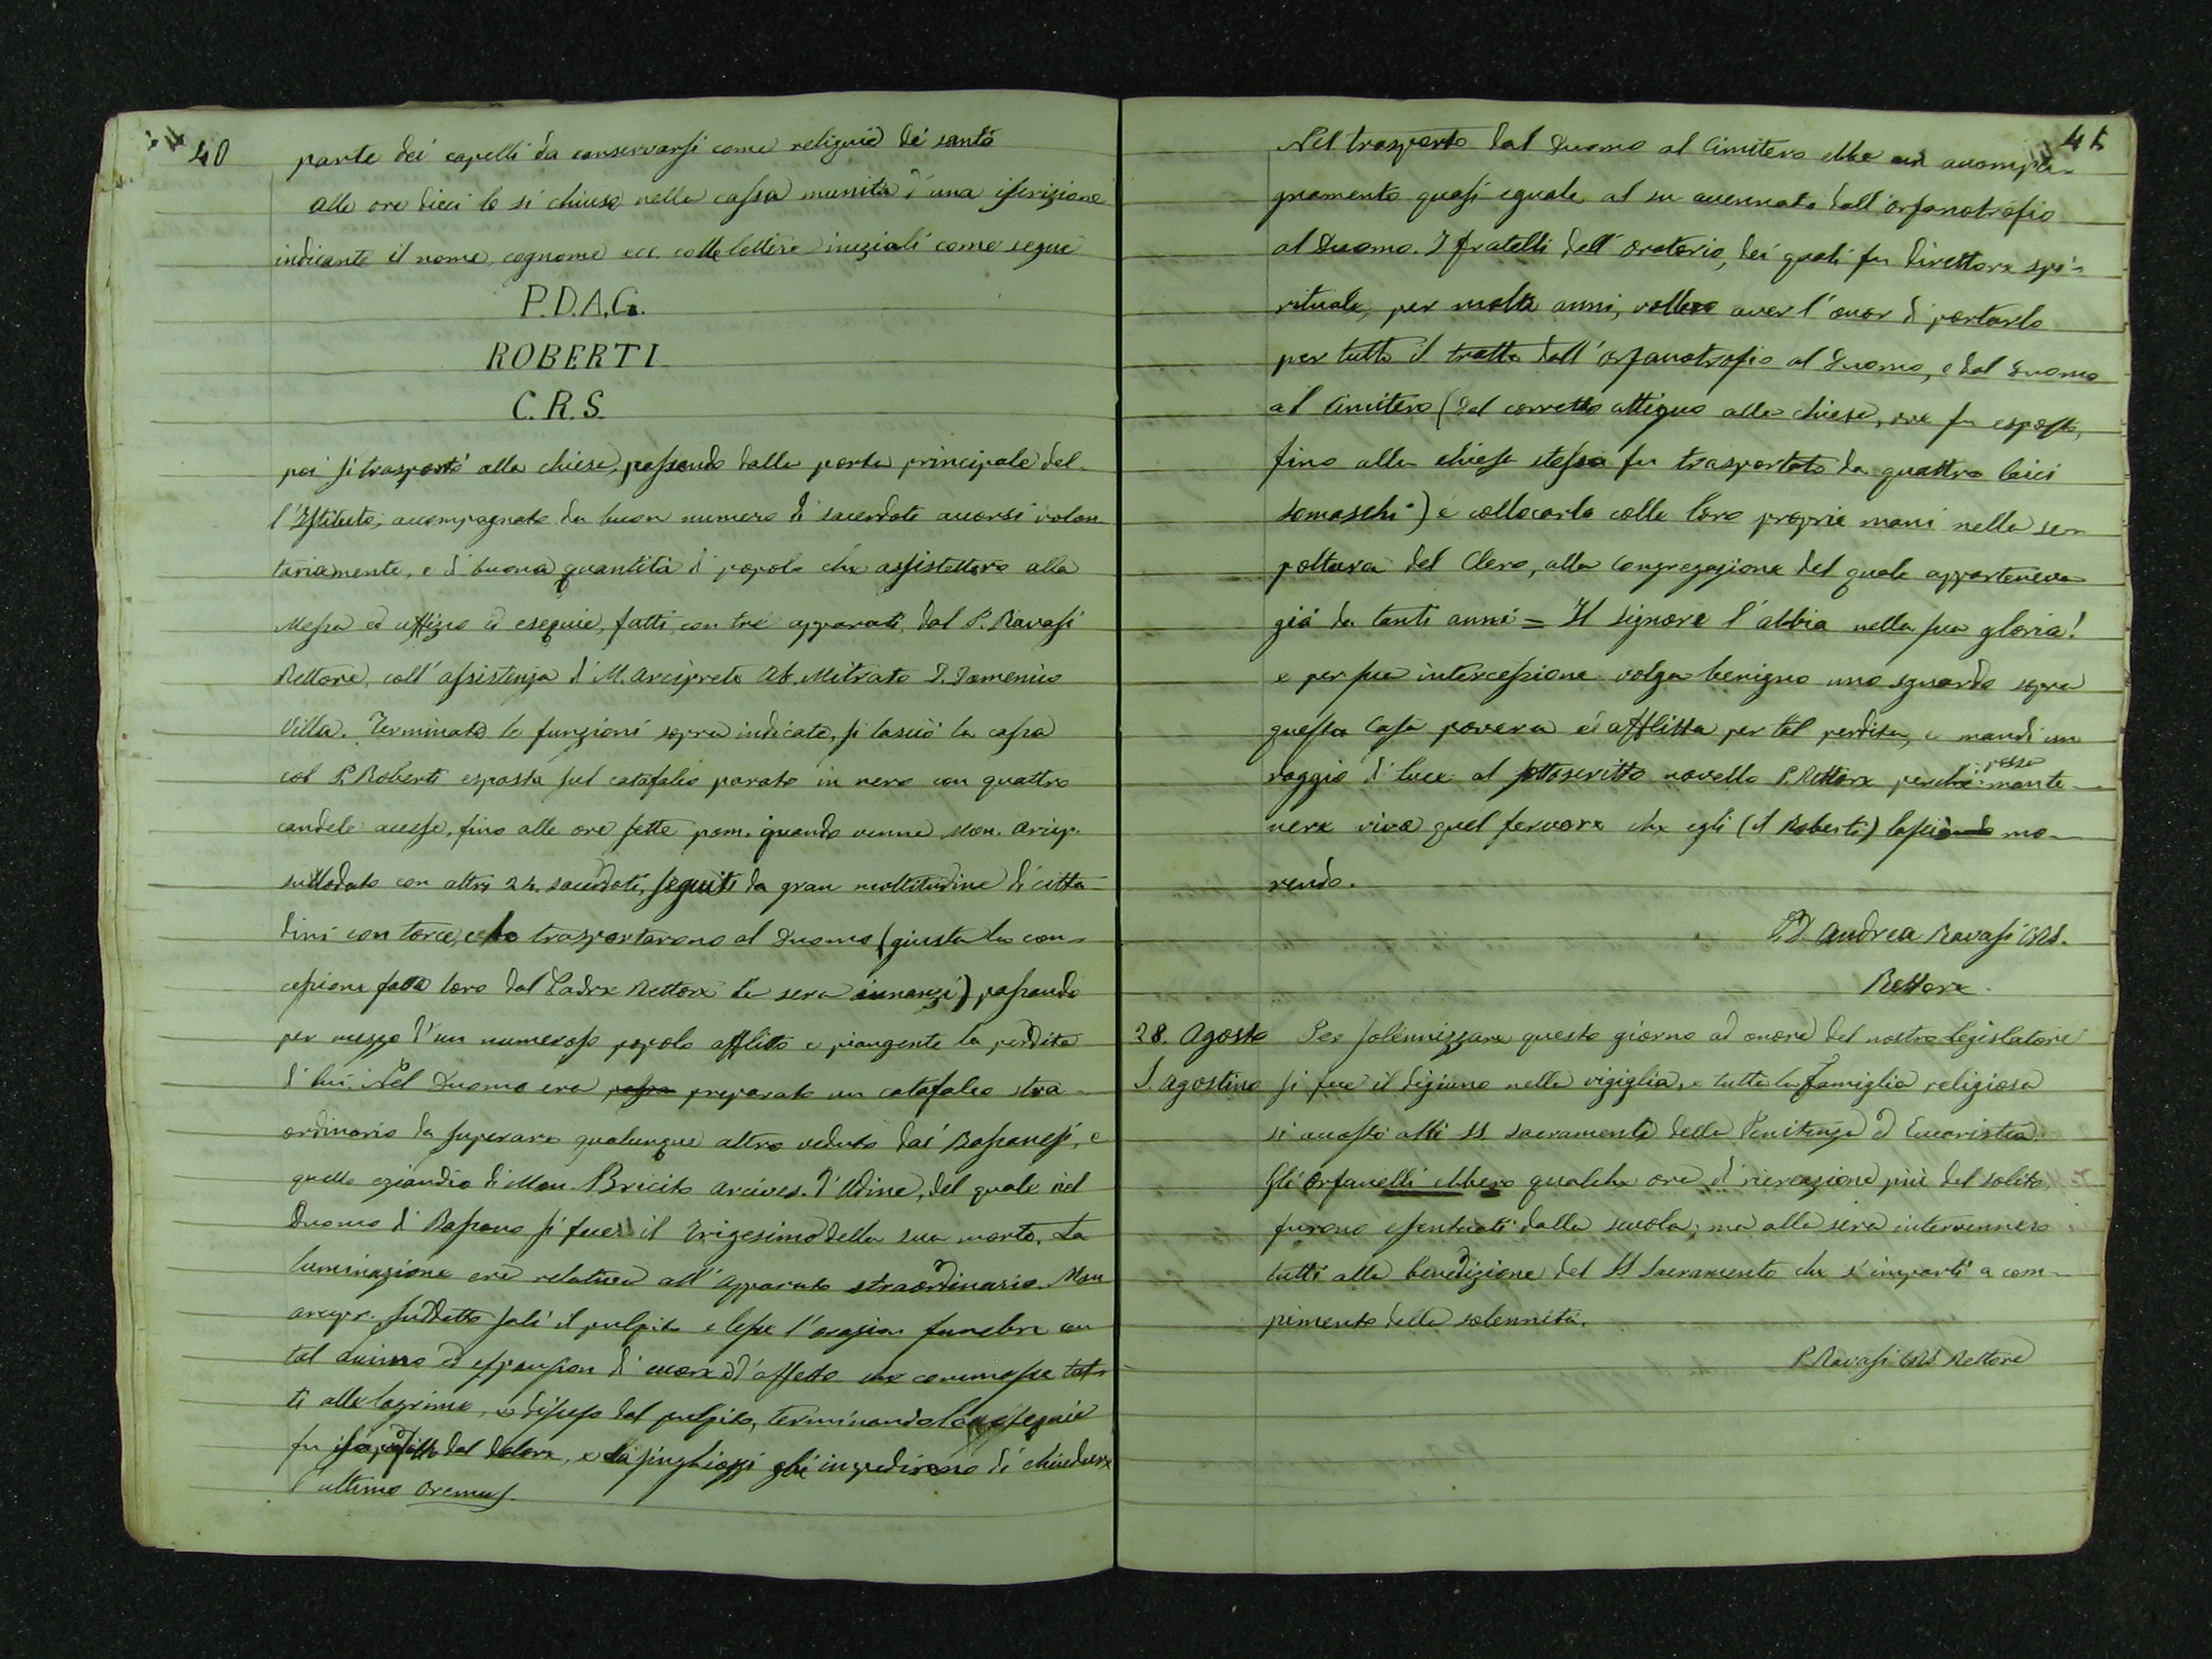 40
parte dei capelli da conservarsi come reliquie de santo
Alle ore dieci lo si chiuse nella cassa munita d'una iscrizione
indicante il nome, cognome ecc. colle lettere iniziali come segue
P.D.A.G.
ROBERTI
C.R.S.
poi si trasportò alla chiesa, passando dalla porta principale del-
l'Istituto, accompagnato da buon numero di sacerdoti accorsi volon-
tariamente, e di buona quantità di popolo che assistettero alla
Messa ed uffizio ed esequie, fatti, con tre apparati, dal P. Ravasi
Rettore, coll'assistenza di M. Arciprete Ab. Mitrato D. Domenico
Villa. Terminate le funzioni sopra indicate, si lasciò la cassa
col P. Roberti esposta sul catafalco parato in nero con quattro
candele accese, fino alle ore sette pom. quando venne Mon. Arcip.
sullodato con altri 24. sacerdoti, seguiti da gran moltitudine di citta-
dini con torce, e lo trasportarono al Duomo (giusta la con-
cessione fatta loro dal Padre Rettore la sera innanzi) passando
per mezzo d'un numeroso popolo afflitto e piangente la perdita
di lui. Nel Duomo era preparato un catafalco stra-
ordinario da superare qualunque altro veduto dai Bassanesi, e
quello eziandio di Mon. Bricito Arcives. d'Udine, del quale nel
Duomo di Bassano si fece il Trigesimo della sua morte. La
luminazione era relativa all'apparato straordinario. Mon
arcipr. suddetto salì il pulpito e lesse l'orazion funebre con
tal animo ed espansion di cuore e d'affetto che commosse tut-
ti alle lagrime, e disceso dal pulpito, terminando le esequie
fu dal dolore, e da singhiozzi gli impedirono di chiudere
l'ultimo Oremus.
41
Nel trasporto dal Duomo al Cimitero ebbe un accompa-
gnamento quasi eguale al su accennato dall'orfanotrofio
al Duomo. I fratelli dell'oratorio, dei quali fu Direttore spi-
rituale, per molti anni, vollero aver l'onor di portarlo
per tutto il tratto dall'orfanotrofio al Duomo, e dal Duomo
al Cimitero (dal corretto attiguo alla chiesa, ove fu esposto,
fino alla chiesa stessa fu trasportato da quattro laici
Somaschi) e collocarlo colle loro proprie mani nella se-
poltura del Clero, alla Congregazione del quale apparteneva
già da tanti anni = Il Signore l'abbia nella sua gloria!
e per sua intercessione volga benigno uno sguardo sopra
questa Casa povera ed afflitta per tal perdita, e mandi un
raggio di luce al sottoscritto novello P. Rettore perchè possa mante-
nere viva quel fervore che egli (il Roberti) lasciò mo-
rendo.
P.D. Andrea Ravasi CRS.
Rettore.
28. Agosto Per solennizzare questo giorno ad onore del nostro Legislatore
S. Agostino si fece il digiuno nella vigiglia, e tutta la famiglia religiosa
si accostò alli SS. Sacramenti della Penitenza ed Eucaristia.
Gli Orfanelli ebbero qualche ora di ricreazione più del solito,
furono esentuati dalla scuola; ma alla sera intervennero
tutti alla benedizione del SS Sacramento che s'impartì a com-
pimento della solennità.
P. Ravasi CRS Rettore